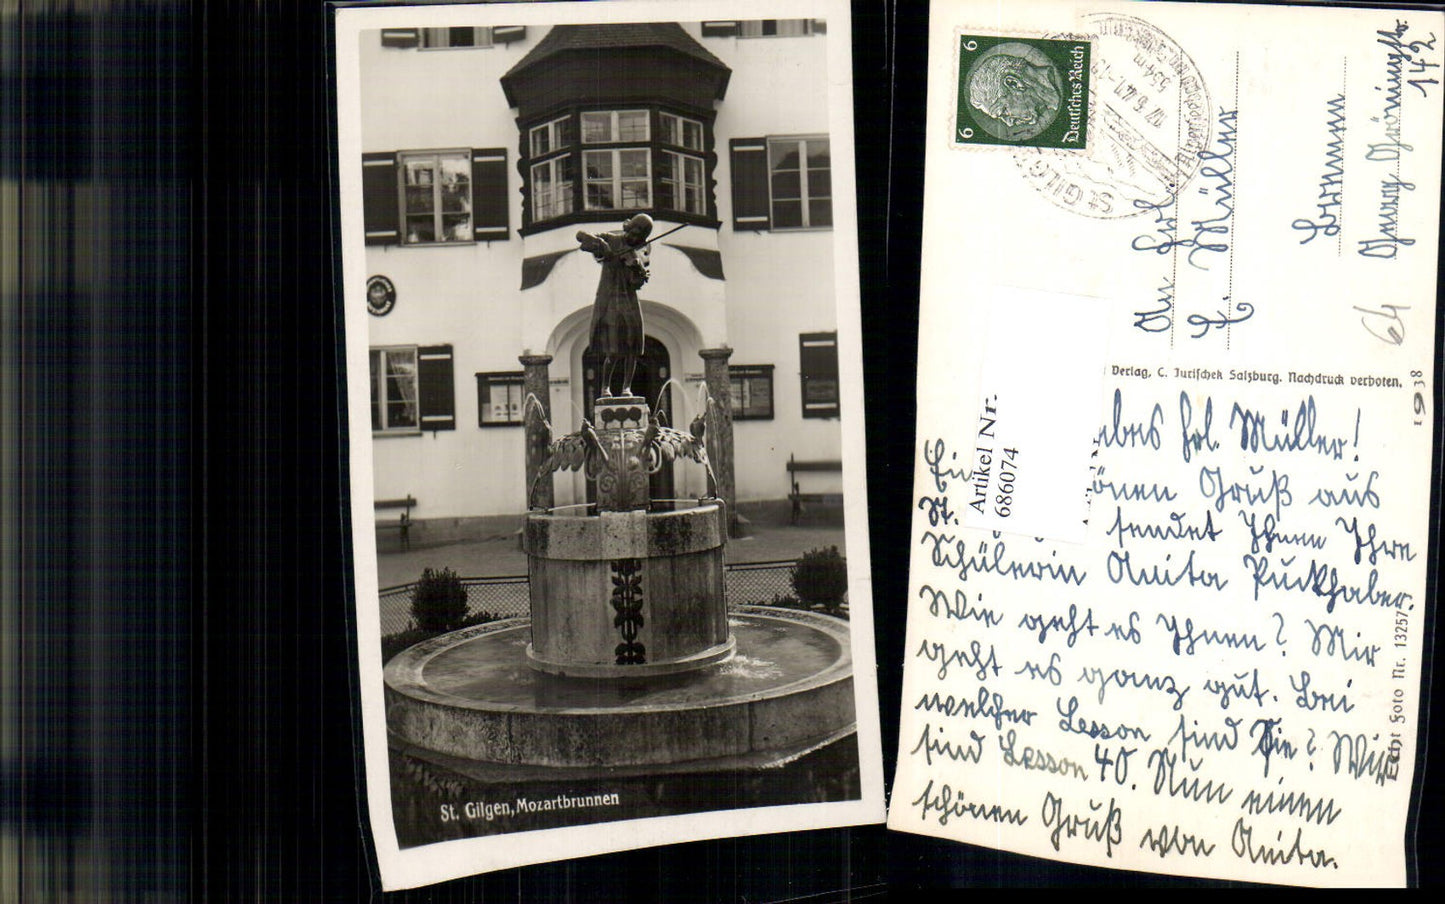 St. Gilgen, Mozartbrunnen
6
6
Deutsches Reich
St GILGEN
534 m
An Frl.
E. Müllner
Bremen
142
64
Verlag, C. Jurischek Salzburg. Nachdruck verboten.
1938
Echt Foto Nr. 13257
Artikel Nr.
686074
Frl. Müller!
Gruß aus
St. sendet Ihnen Ihre
Schülerin Anita Puckhaber.
Wie geht es Ihnen? Mir
geht es ganz gut. Bei
welcher Lesson sind Sie? Wir
sind Lesson 40. Nun einen
schönen Gruß von Anita.